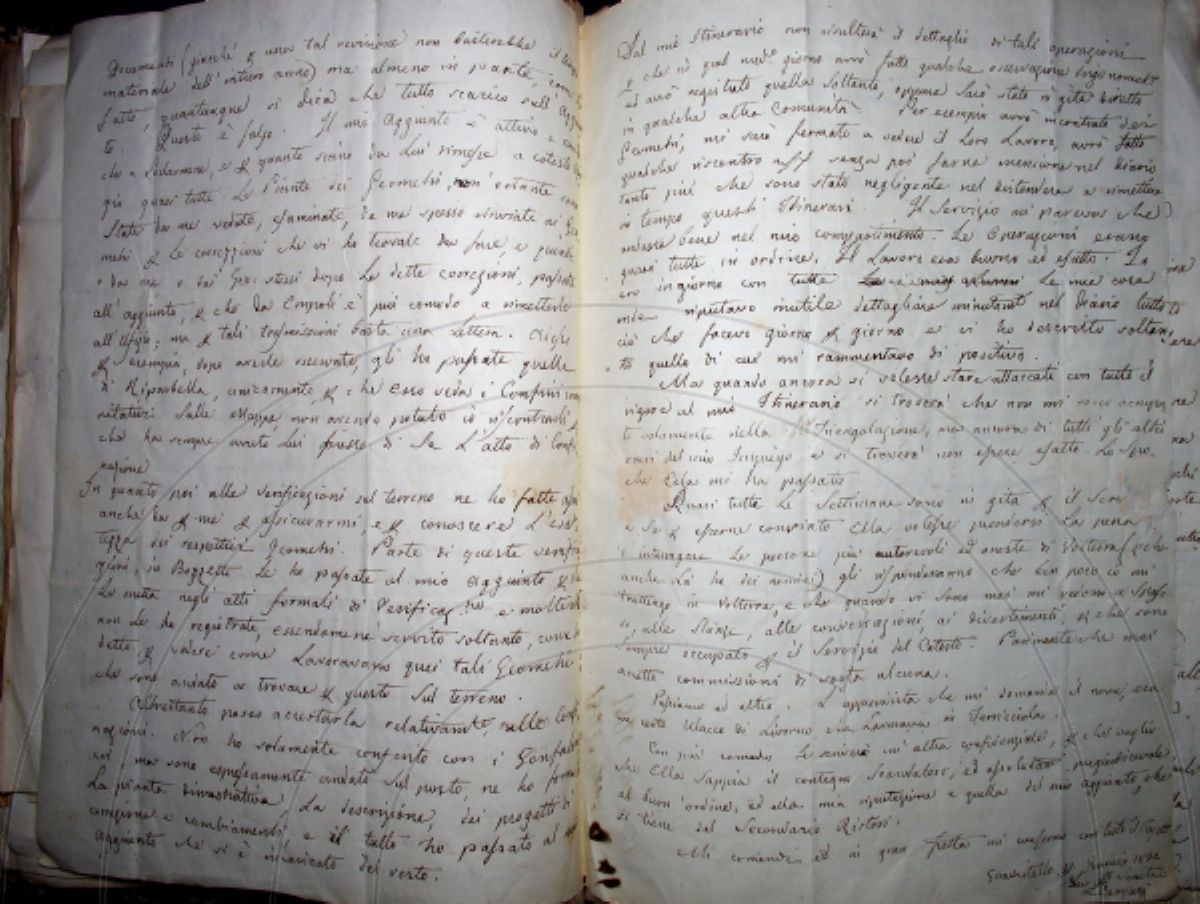 Documenti (giacchè & una tal revisione non basterebbe il tempo
materiale dell'intiero anno) ma almeno in parte, come
fatto, quantunque si dica che tutto scarico sull'Aggiun
to. Questo è falso. Il mio Aggiunto è attivo e
che a & quante siano da lui rimesse a coteste
già quasi tutte le Piante dei Geometri, non ostante sono
state da me vedute, esaminate, da me spesso ai Geo
metri & le correzzioni che vi ho trovate da fare, e quindi
o da me o dai stessi dopo le dette correzioni, passate
all'aggiunto, & che da Empoli è più comodo a rimetterle
all'Ufizio; ma & tali trasmissioni basta una lettera.
& esempio, dopo averle gli ho passate quelle
di Riparbella, unicamente & che esso veda i Confini
sulle Mappe non avendo potuto io riscontrarli &
che ha sempre avuto lui presso di Se l'atto di Confi
nazione
In quanto poi alle verificazioni sul terreno ne ho fatte
anche da & me & assicurarmi, e & conoscere l'esat
tezza dei respettivi Geometri. Parte di queste verifi
gioni in Bozzetto le ho passate al mio aggiunto &
la metta negli atti formali di Verificaz.ne e molte
non le ho registrate, essendomene servito soltanto, come
detto, & vedere come Lavoravano quei tali Geometri
che sono andato a trovare & questo sul terreno.
Altrettanto posso accertarla relativam.te alle Conf
nazioni. Non ho solamente conferito con i Confinatori
ma sono espressamente andato sul posto, ne ho formata
la pianta dimostrativa, la descrizione, dei progetti di
correzione e cambiamenti, e il tutto ho passato al mio
Aggiunto che si è incaricato del resto.
Dal mio Itinerario non risulterà il dettaglio di tali operazioni
e che in qual med.o giorno avrò fatto qualche osservazione
ed avrò registrato quella soltanto, oppure sarò stato in gita diretto
in qualche altra Comunità. Per esempio avrò incontrato dei
Geometri, mi sarò fermato a vedere il loro Lavoro, avrò fatto
qualche riscontro senza poi farne menzione nel Diario
tanto più che sono stato negligente nel distendere e rimettere
in tempo questi Itinerari. Il Servizio mi pareva che
andasse bene nel mio compartimento. Le Operazioni erano
quasi tutte in ordine. Il Lavoro era buono ed esatto. Io
ero in giorno con tutte le mie cose
onde riputavo inutile dettagliare minutam.te nel Diario tutto
ciò che facevo giorno & giorno e vi ho descritto soltan
to quello di cui mi rammentavo di positivo.
Ma quando ancora si volesse stare attaccati con tutto il
rigore al mio Itinerario si troverà che non mi sono occupa
to solamente della Triangolazione, ma ancora di tutti gli altri
rami del mio Impiego e si troverà non essere esatto lo spo
che Ella mi ha passato
Quasi tutte le Settimane sono in gita & il Ser
e se & esserne convinto Ella volesse prendersi la pena
d'interrogare le persone più autorevoli ed oneste di Volterra (& che
anche là ho dei nemici) gli risponderanno che ben poco io mi
trattengo in Volterra, e che quando vi sono mai mi vedono a spas
so, alle Stanze, alle conversazioni, ai divertimenti & che sono
sempre occupato & il Servizio del Catasto. Parimente che mai
ametto commissioni di sorta alcuna.
Passiamo ad altro. L'apparisita che mi domanda il nome, era
un certo Ulacco di Livorno, e Lavorava in Terricciola.
Con più comodo le scriverò un'altra confidenziale, & che voglio
che Ella sappia il contegno Scandaloso, ed assolutam. pregiudicevole
al buon'ordine, ed alla mia riputazione e quella del mio aggiunto, che
si tiene dal Secondario Ristori.
Mi comandi ed in gran fretta mi confermo con tutto il
Gennaio